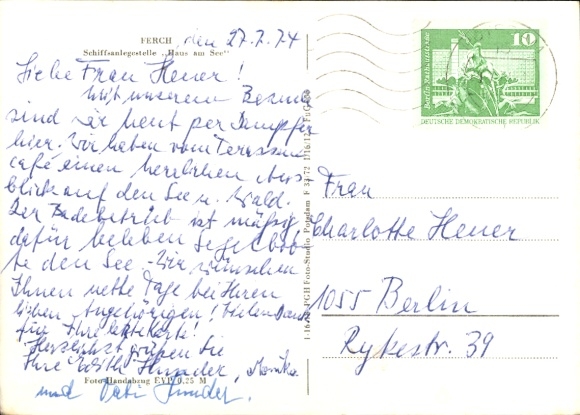 FERCH, den 27.7.74
Schiffsanlegestelle „Haus am See"
Liebe Frau Heuer!
Mit unserem Besuch
sind wir heut per Dampfer
hier. Wir haben vom Terrassen
café einen herrlichen Aus
blick auf den See u. Wald.
Der Badebetrieb ist mäßig
dafür beleben Segelboo
te den See. Wir wünschen
Ihnen nette Tage bei Ihren
lieben Angehörigen! Vielen Dank
für Ihre Karte!
Herzlichst grüßen Sie
Ihre Edith, Monika
und
Foto-Handabzug EVP 0,25 M
PGH Foto-Studio Potsdam
10
DEUTSCHE DEMOKRATISCHE REPUBLIK
Frau
Charlotte Heuer
1055 Berlin
Rykestr. 39